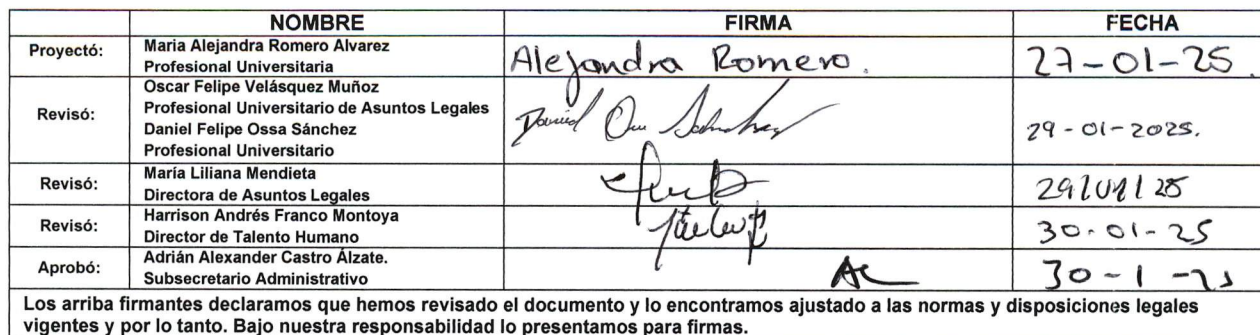 NOMBRE FIRMA FECHA
Proyectó: Maria Alejandra Romero Alvarez
Profesional Universitaria
Alejandra Romero. 27-01-25.
Revisó: Oscar Felipe Velásquez Muñoz
Profesional Universitario de Asuntos Legales
Daniel Felipe Ossa Sánchez
Profesional Universitario
Daniel Sánchez 29-01-2025.
Revisó: María Liliana Mendieta
Directora de Asuntos Legales
29/01/25
Revisó: Harrison Andrés Franco Montoya
Director de Talento Humano
30-01-25
Aprobó: Adrián Alexander Castro Álzate.
Subsecretario Administrativo
30-1-25
Los arriba firmantes declaramos que hemos revisado el documento y lo encontramos ajustado a las normas y disposiciones legales
vigentes y por lo tanto. Bajo nuestra responsabilidad lo presentamos para firmas.